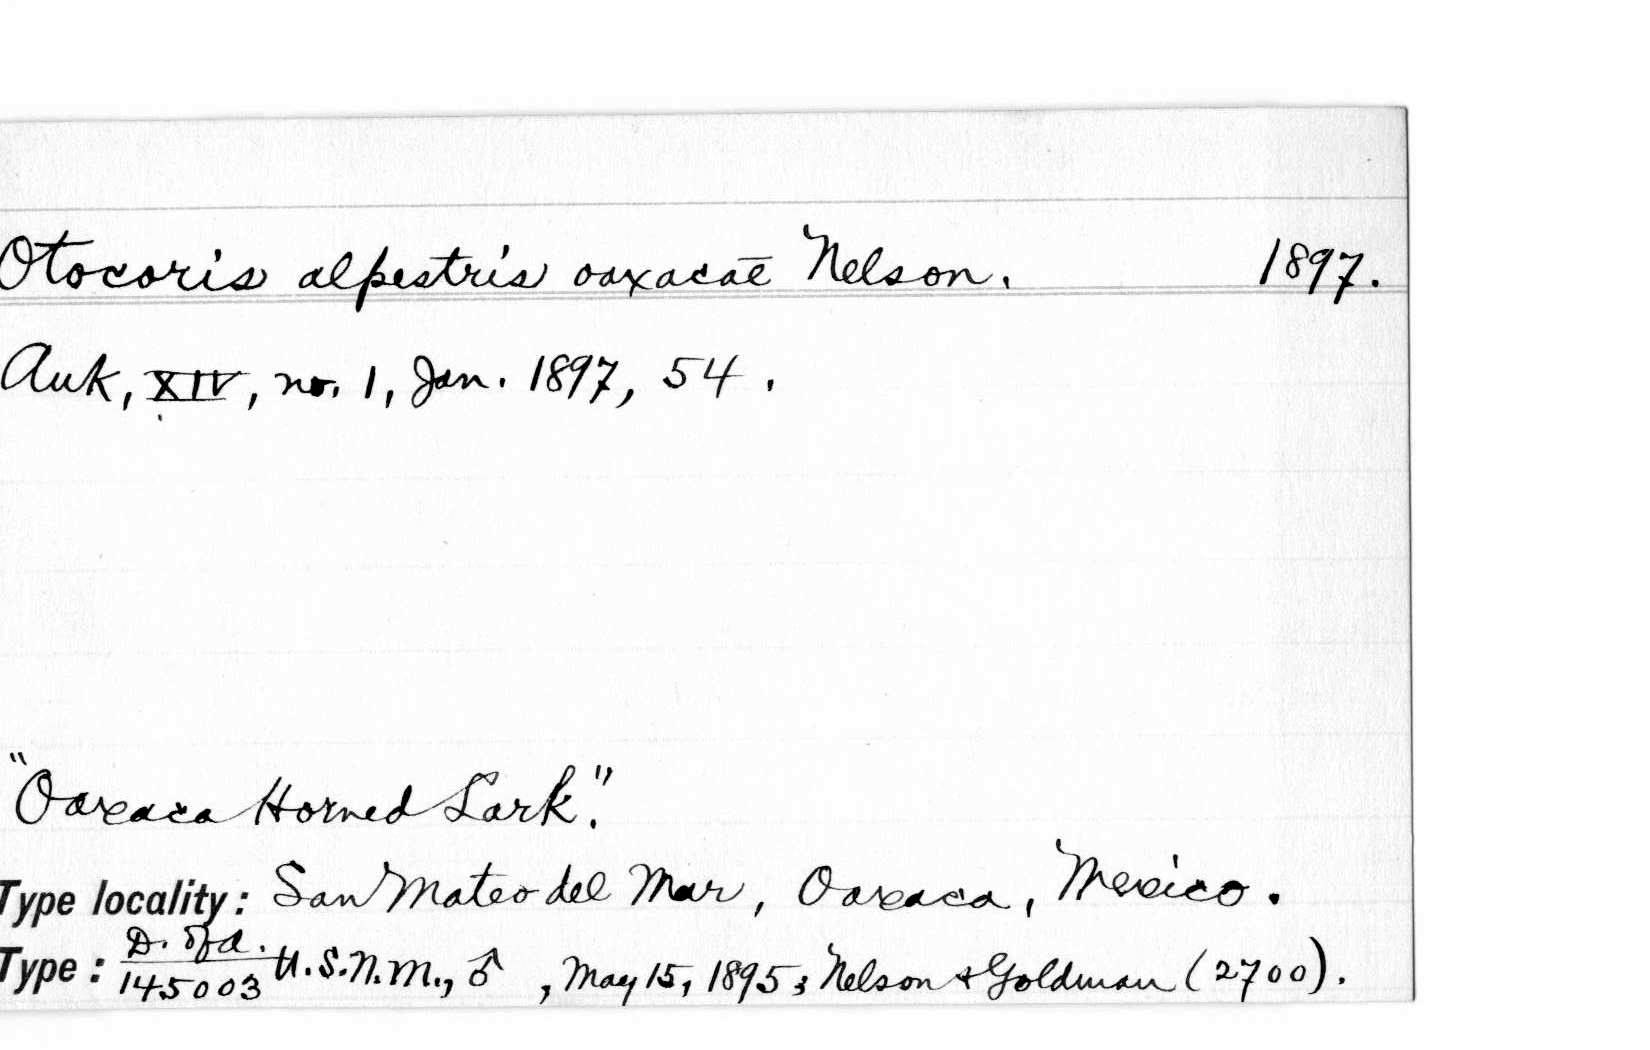 Otocoris alpestris oaxacae Nelson. 1897.
Auk, XIV, no. 1, Jan. 1897, 54.
"Oaxaca Horned Lark".
Type locality: San Mateo del Mar, Oaxaca, Mexico.
D. of A.
Type: 145003 U.S.N.M., ♂, May 15, 1895; Nelson & Goldman (2700).